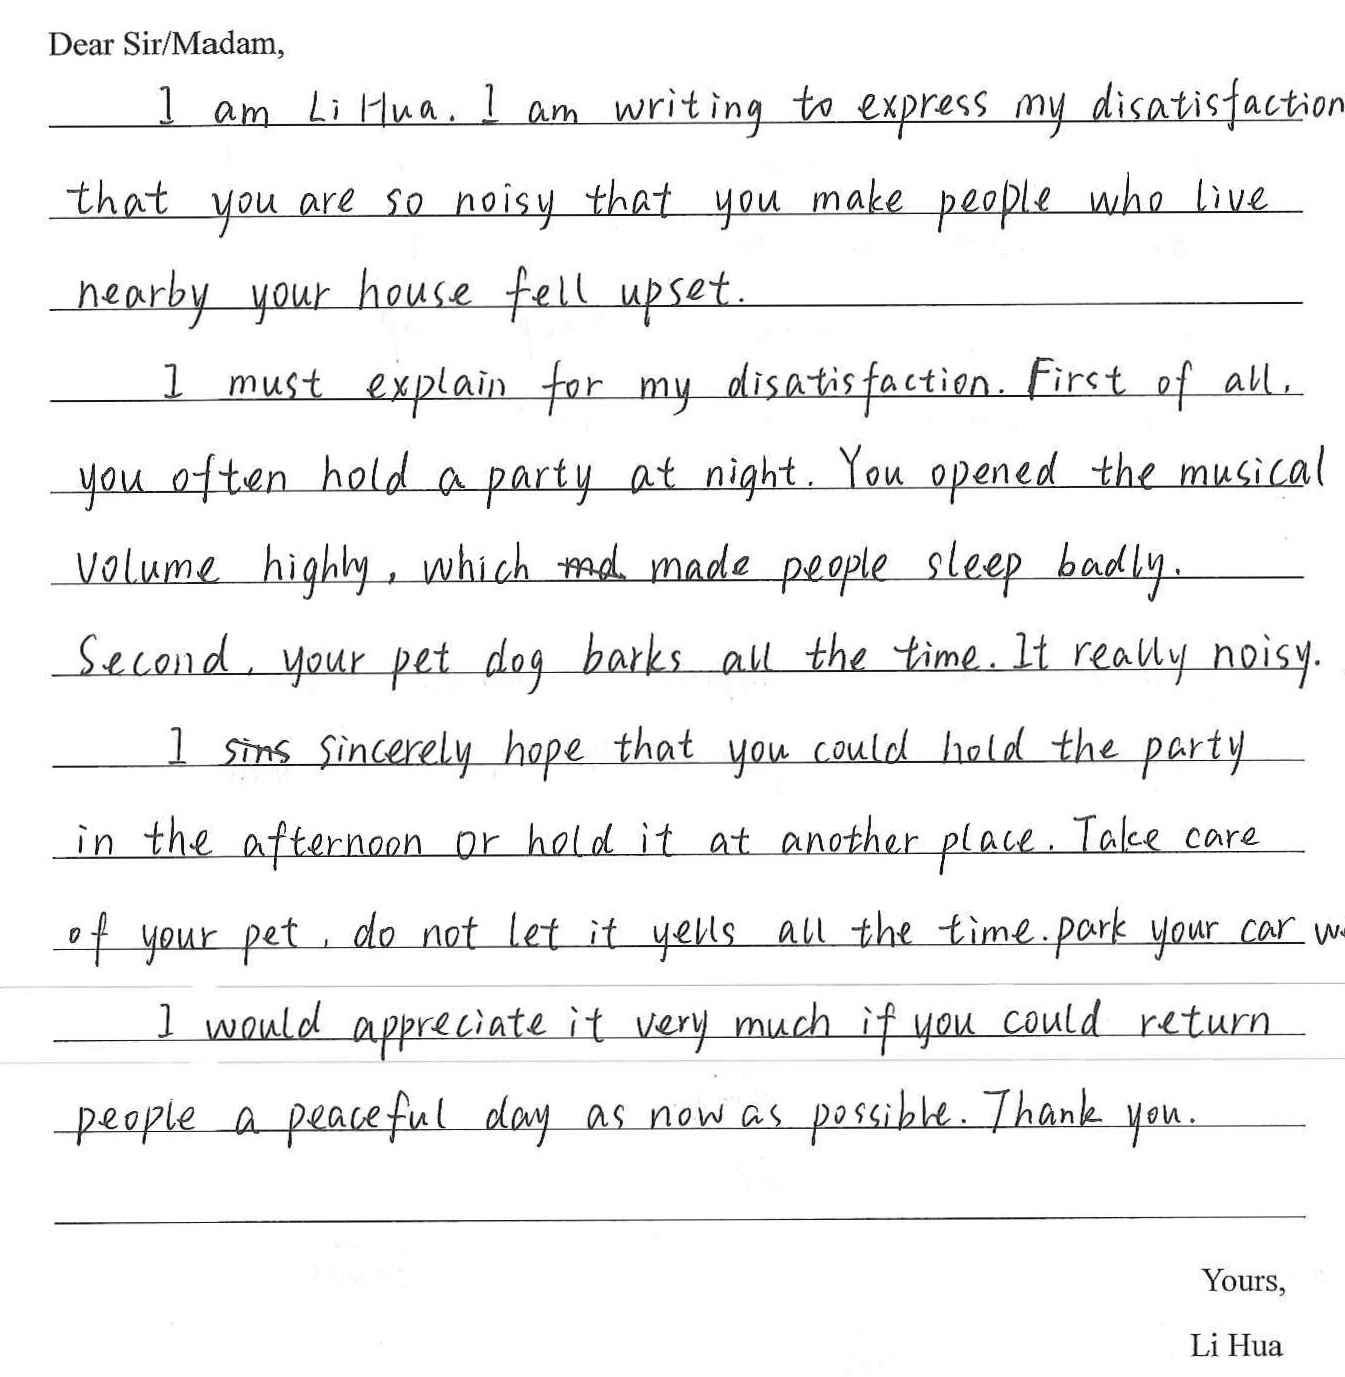 Dear Sir/Madam,
I am Li Hua. I am writing to express my disatisfaction
that you are so noisy that you make people who live
nearby your house fell upset.
I must explain for my disatisfaction. First of all,
you often hold a party at night. You opened the musical
volume highly, which md made people sleep badly.
Second, your pet dog barks all the time. It really noisy.
I sins sincerely hope that you could hold the party
in the afternoon or hold it at another place. Take care
of your pet, do not let it yells all the time. park your car
I would appreciate it very much if you could return
people a peaceful day as now as possible. Thank you.
Yours,
Li Hua